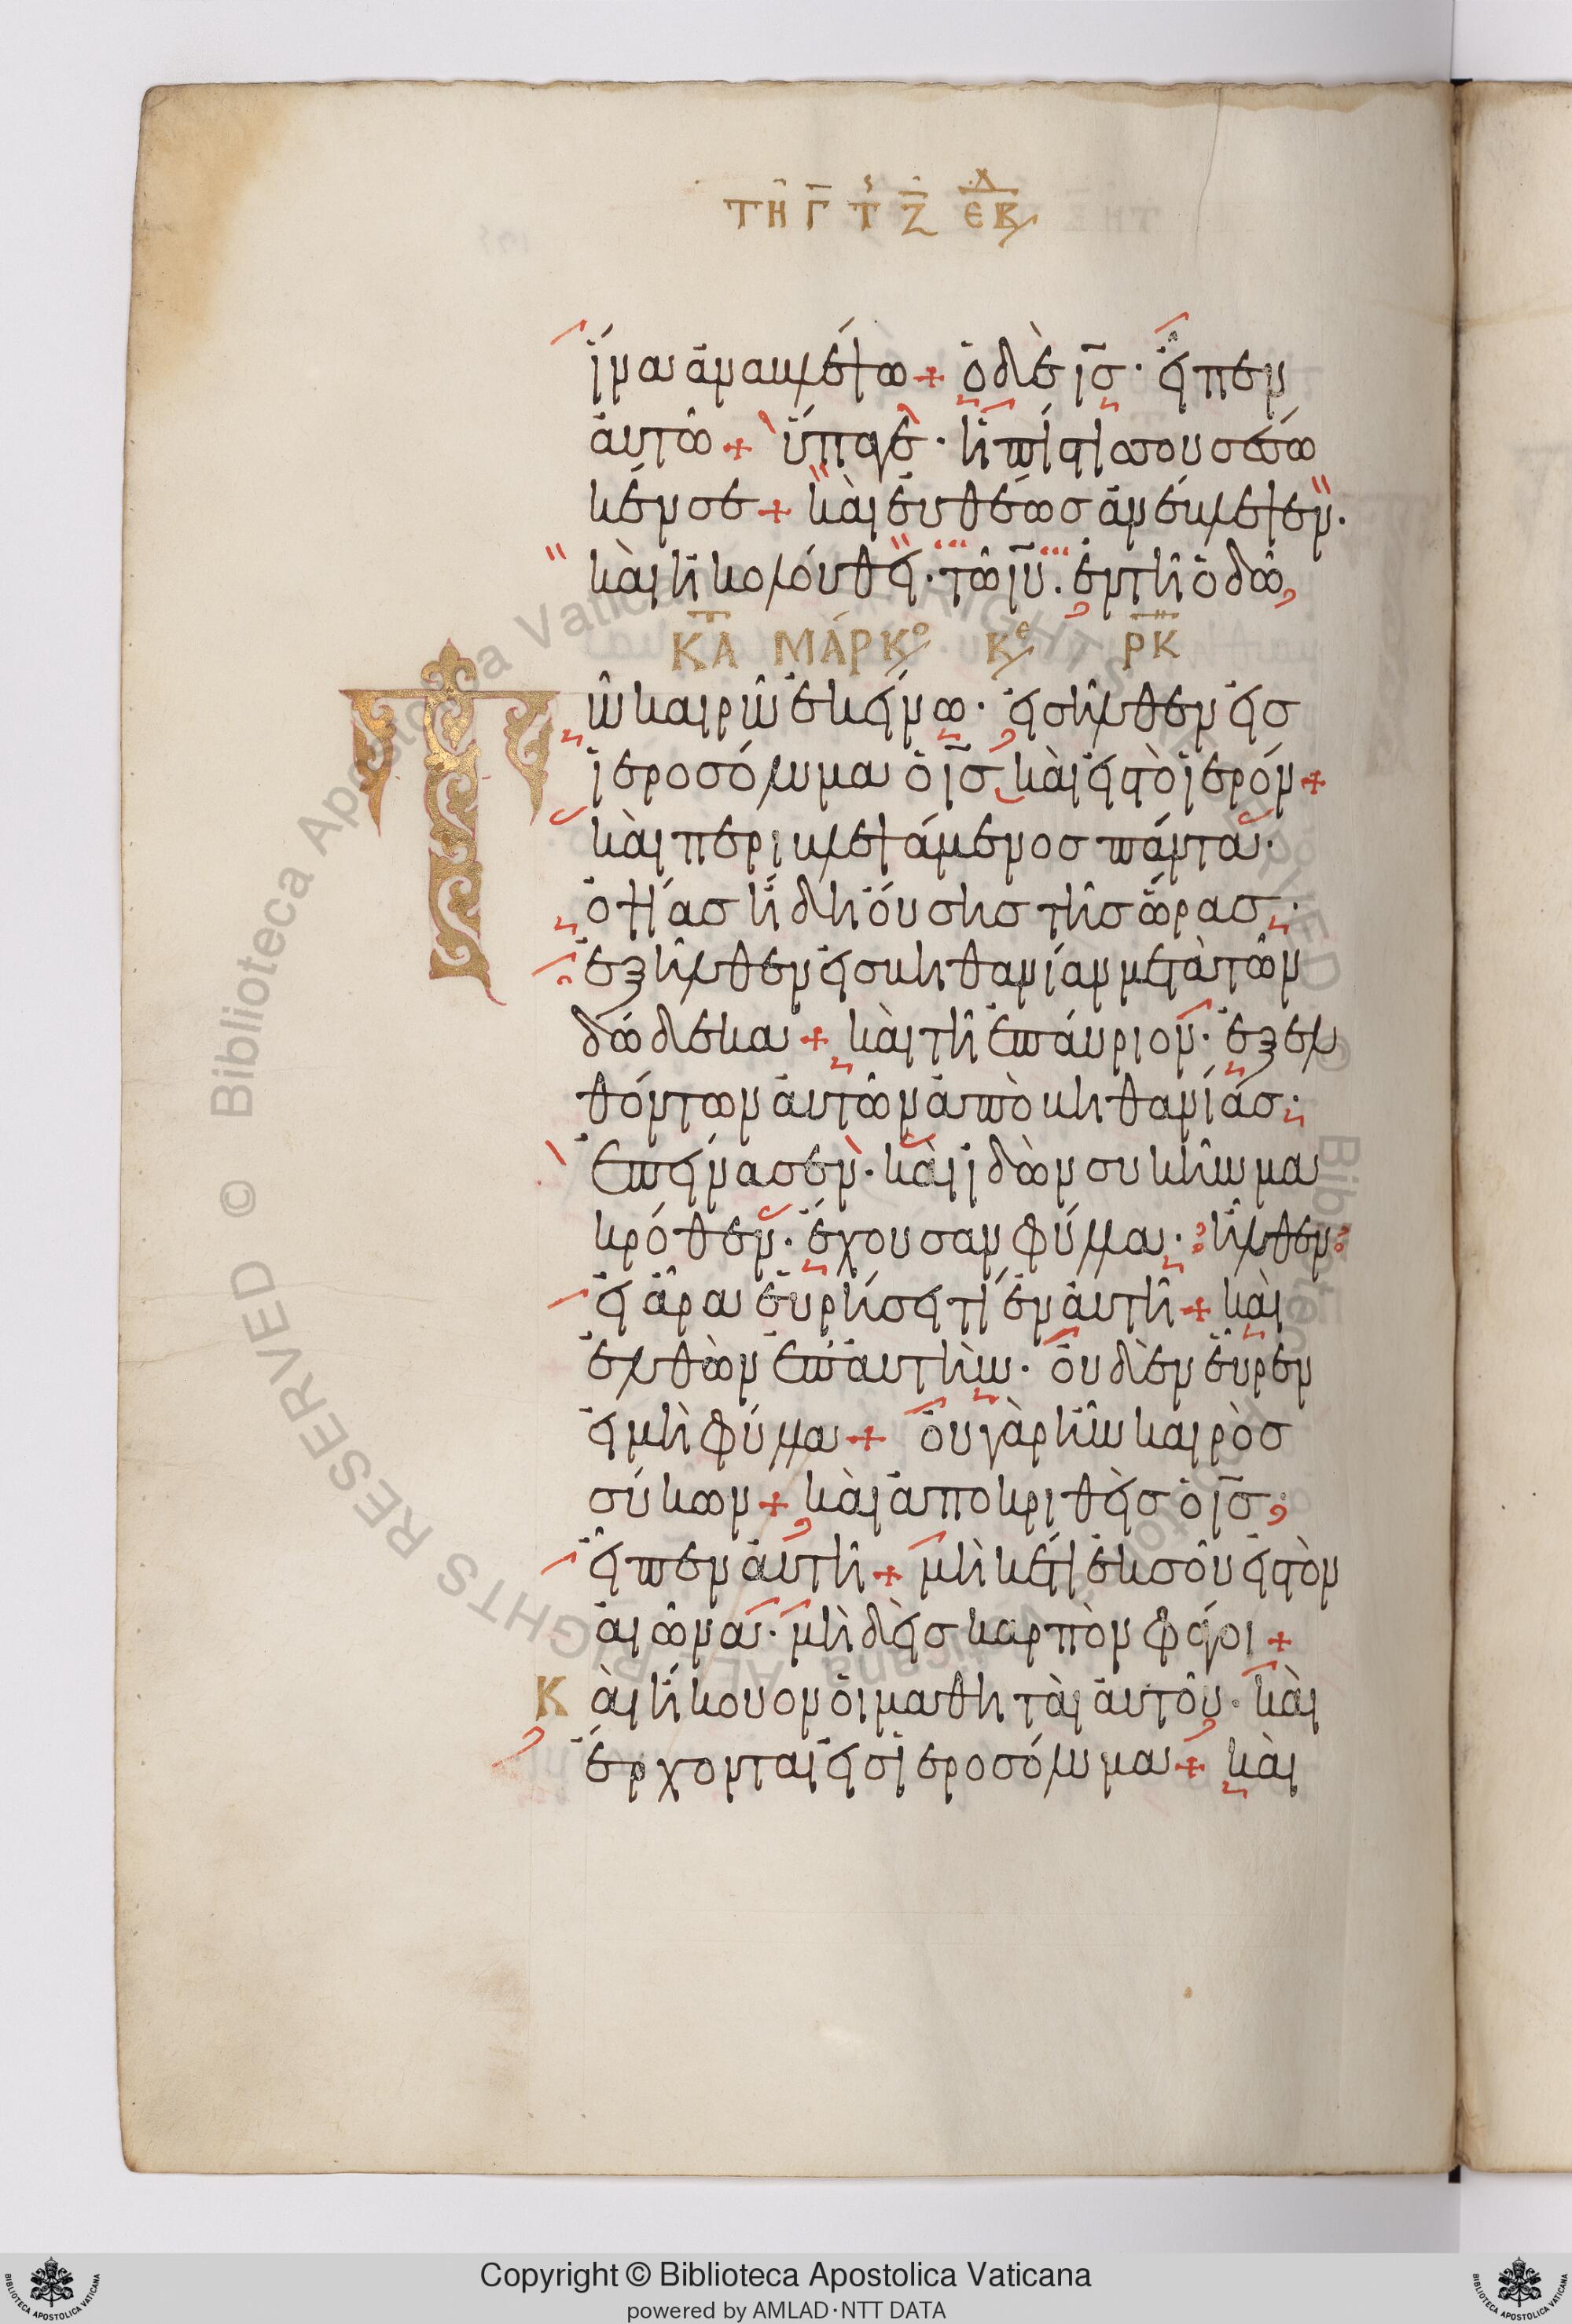 ΤΗ Γ Τ Ζ ΕΒΔ
ἵνα ἀναβλέψω + ὁ δὲ ις̅· εἶπεν
αὐτῶ + ὕπαγε· ἡ πίστις σου σέσω
κέν σε + καὶ εὐθέως ἀνέβλεψεν·
καὶ ἠκολούθει· τῶ ιυ̅· ἐν τῆ ὁδῶ,
ΜΑΡΚ
Τῶ καιρῶ ἐκείνω· εἰσῆλθεν εἰς
ἱεροσόλυμα ὁ ις̅ καὶ εἰς τὸ ἱερόν +
καὶ περιβλεψάμενος πάντα·
ὀψίας ἤδη οὔσης τῆς ὥρας·
ἐξῆλθεν εἰς βηθανίαν μετὰ τῶν
δώδεκα + καὶ τῆ ἐπάυριον· ἐξελ
θόντων αὐτῶν ἀπὸ βηθανίας·
ἐπείνασεν· καὶ ἰδὼν συκῆν μα
κρόθεν· ἔχουσαν φύλλα· ἦλθεν
εἰ ἄρα εὑρήσει τί ἐν αὐτῆ + καὶ
ἐλθὼν ἐπ' αὐτὴν· οὐδὲν εὗρεν
εἰ μὴ φύλλα + οὐ γὰρ ἦν καιρὸς
σύκων + καὶ ἀποκριθεὶς ὁ ις̅,
εἶπεν αὐτῆ + μὴ κέτι ἐκ σοῦ εἰς τὸν
αἰῶνα· μὴδεὶς καρπὸν φάγοι +
Καὶ ἤκουον οἱ μαθηταὶ αὐτοῦ· καὶ
ἔρχονται εἰς ἱεροσόλυμα + καὶ
Copyright © Biblioteca Apostolica Vaticana
powered by AMLAD·NTT DATA